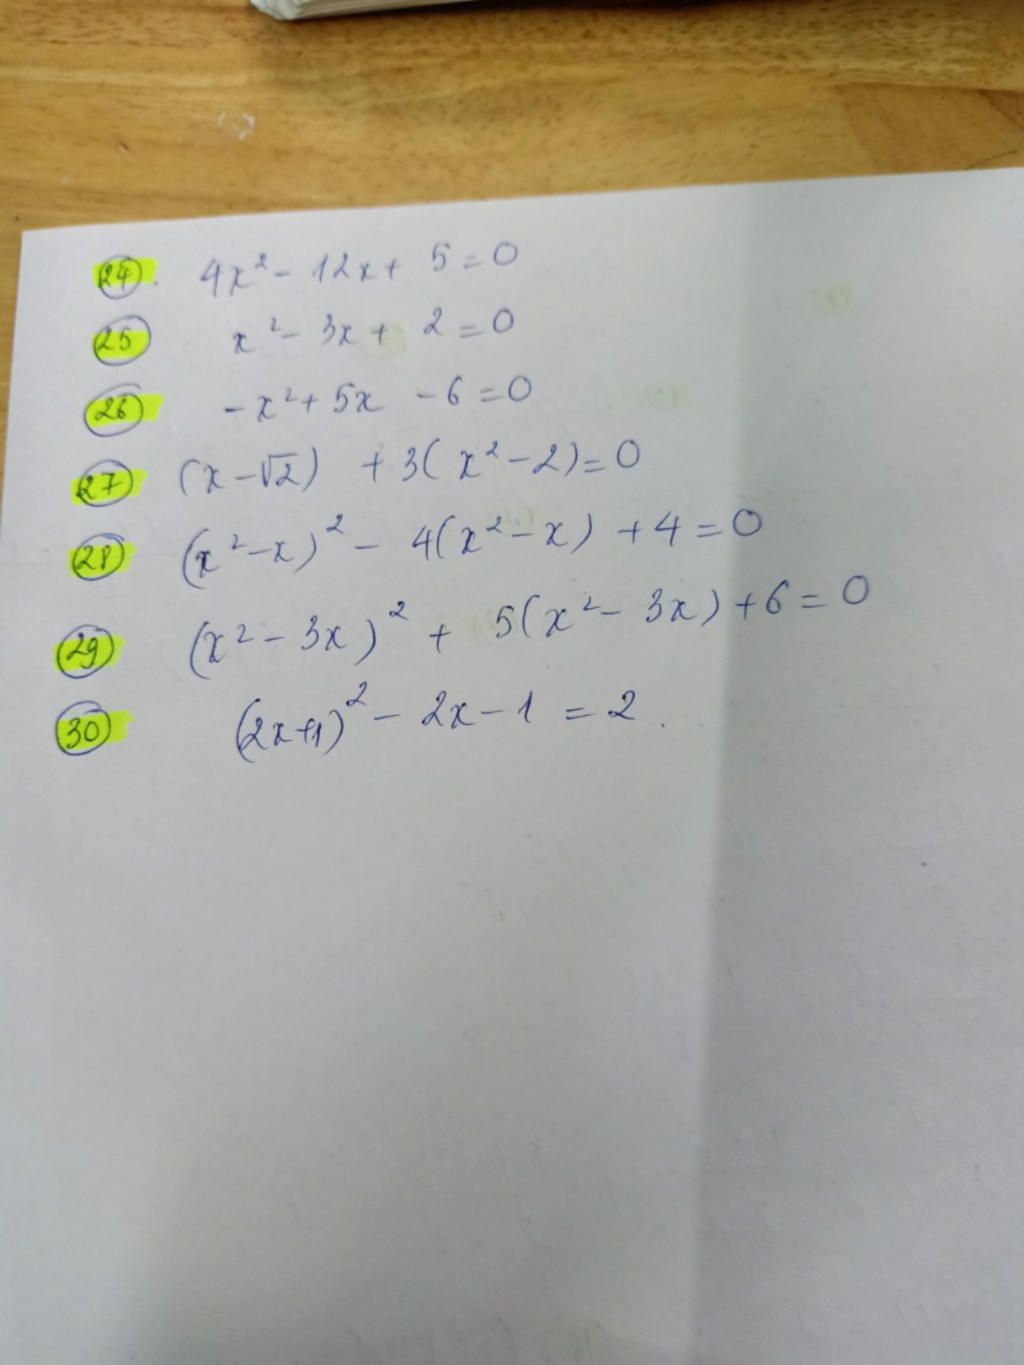 24. 4x² - 12x + 5 = 0
25 x² - 3x + 2 = 0
26 -x² + 5x - 6 = 0
27 (x - √2) + 3(x² - 2) = 0
28 (x² - x)² - 4(x² - x) + 4 = 0
29 (x² - 3x)² + 5(x² - 3x) + 6 = 0
30 (2x+1)² - 2x - 1 = 2.